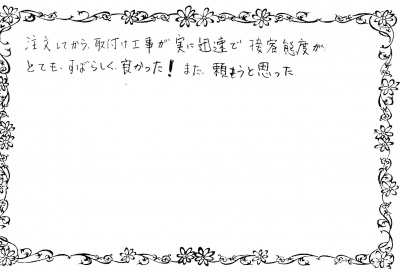 注文してから、取付け工事が実に迅速で接客態度が
とても、すばらしく、良かった！また、頼もうと思った